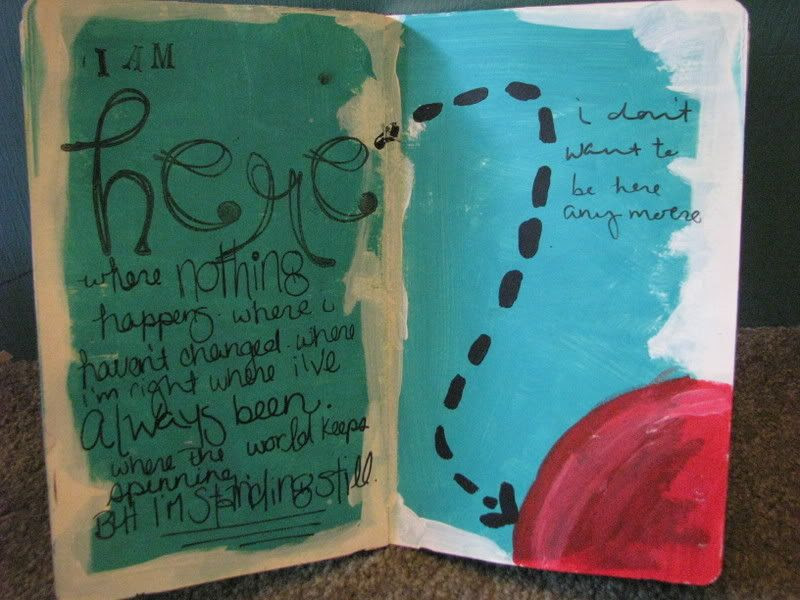 I AM
here.
where nothing
happens. where i
haven't changed. where
i'm right where i've
always been.
where the world keeps
spinning.
But I'm standing still.
i don't
want to
be here
any more